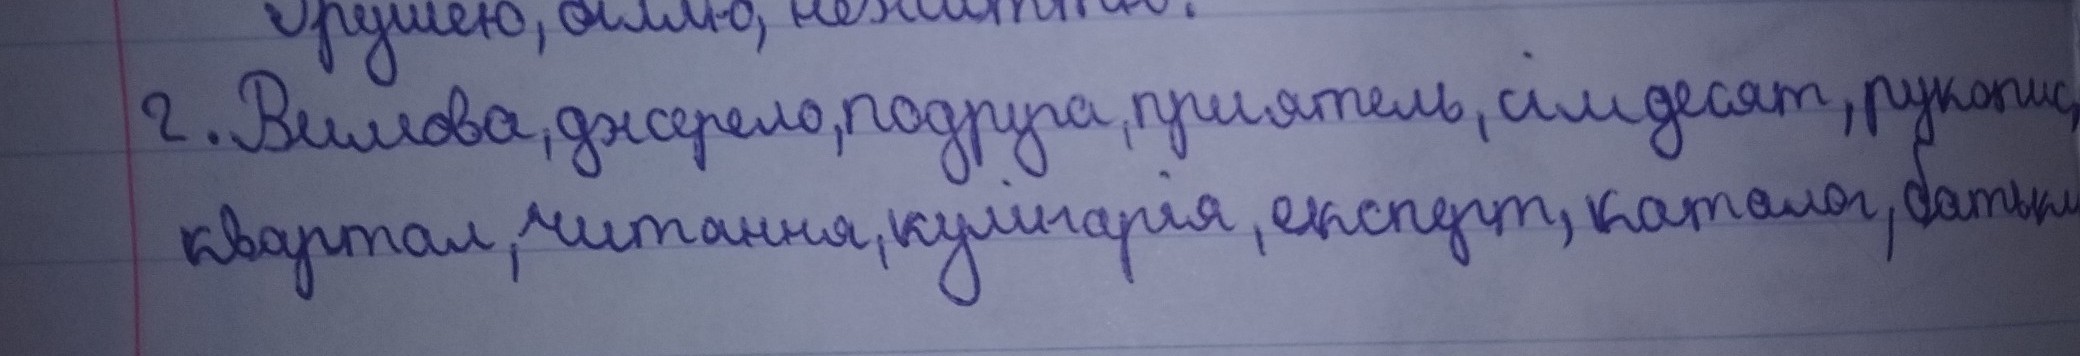 грушею, 
2. Вимова, джерело, подруга, приятель, сімдесят, рукопис,
квартал, читання, кулінарія, експерт, каталог, батьки